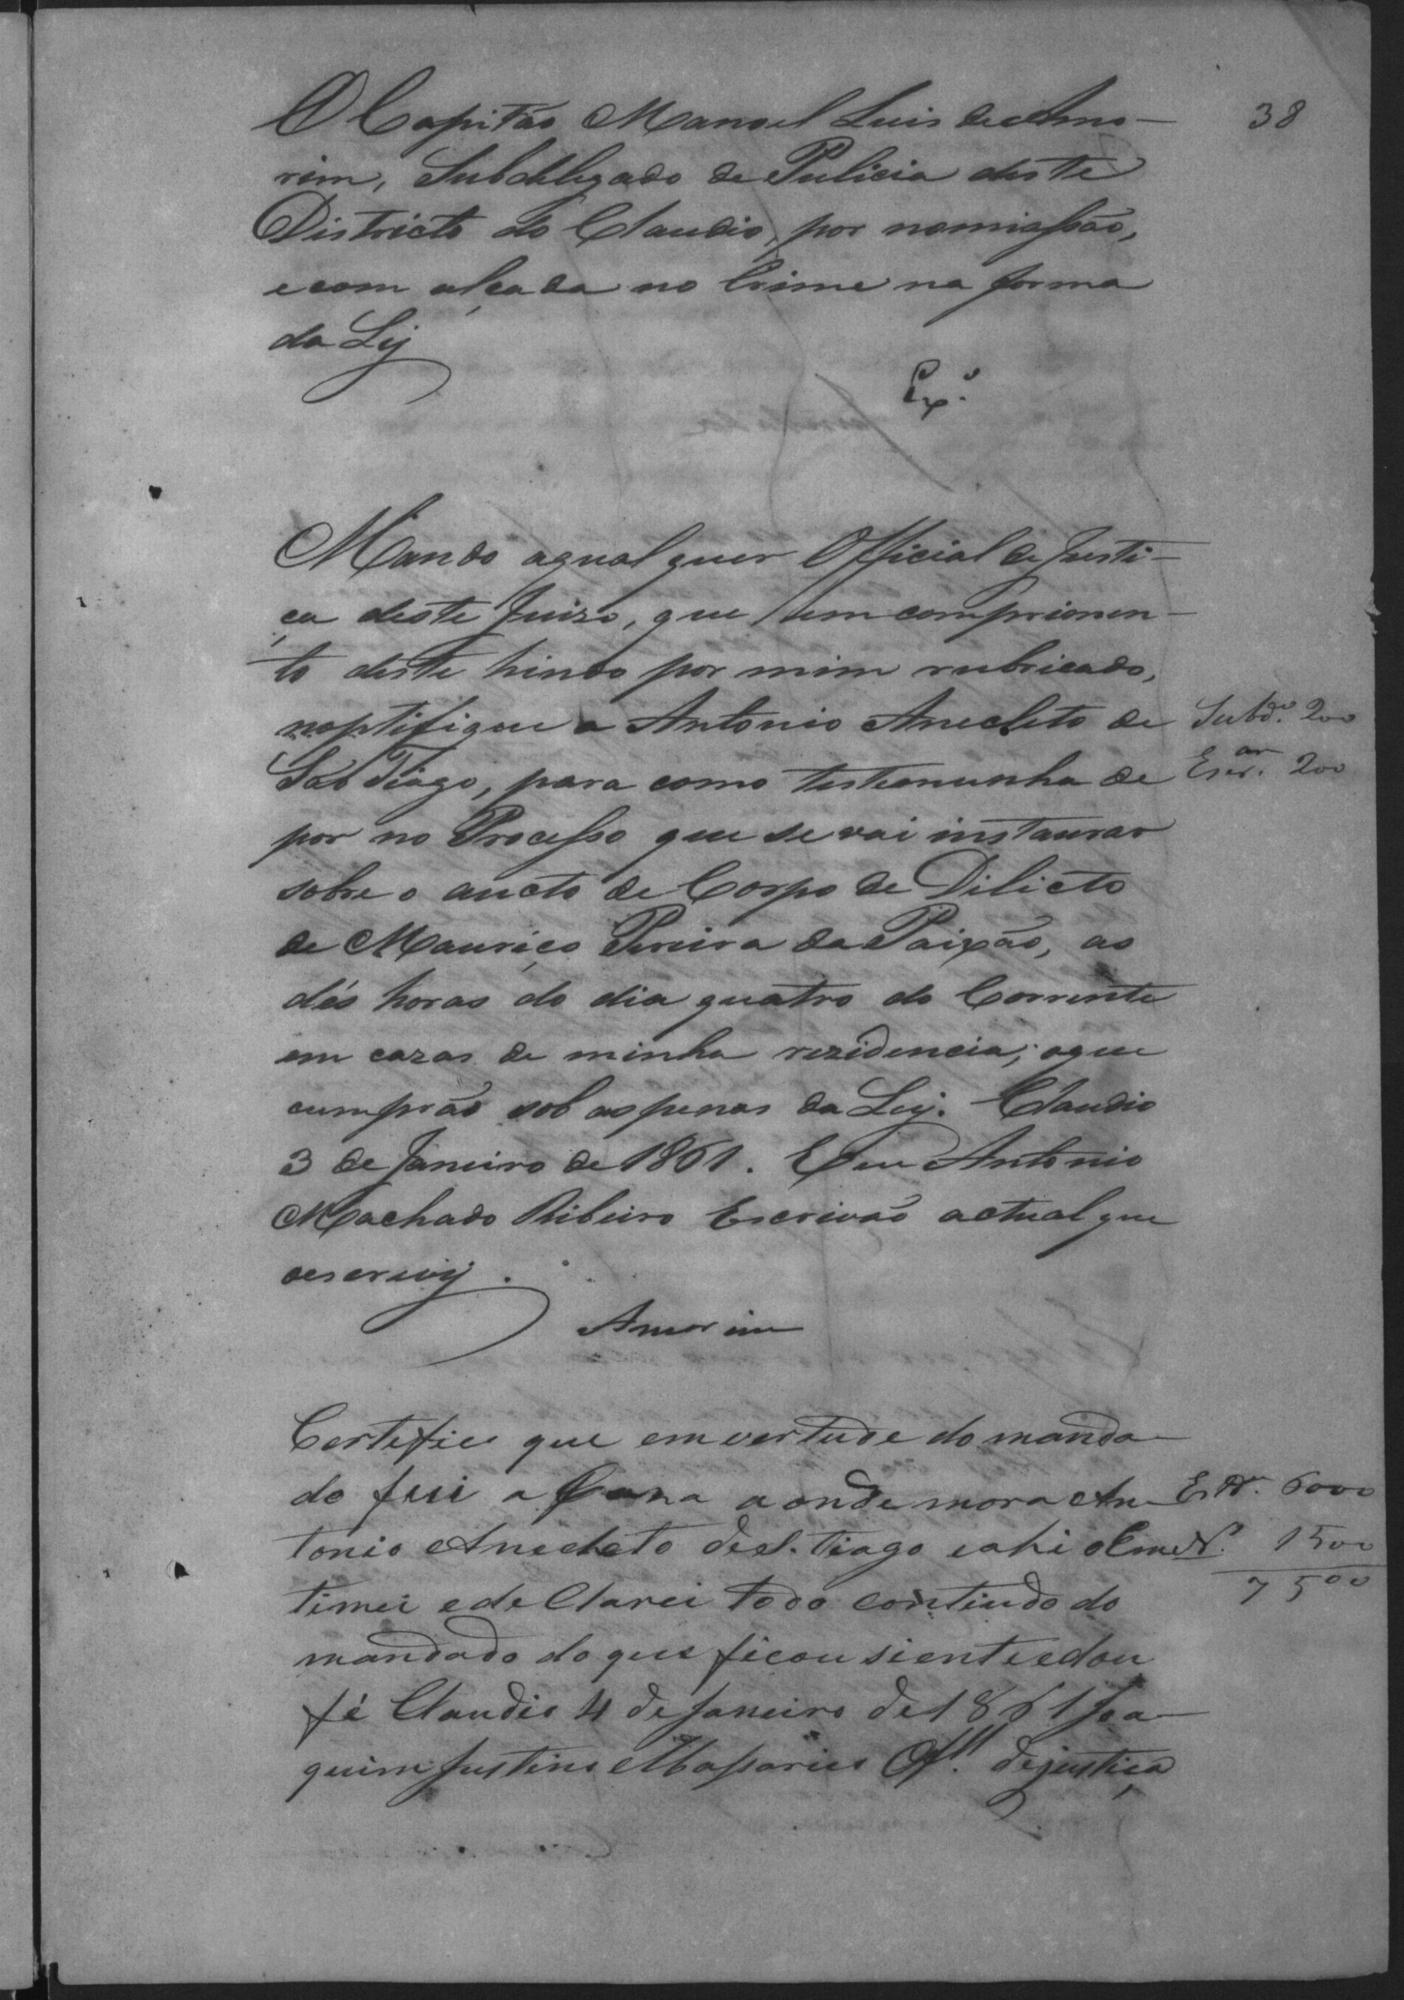 38
O Capitão Manoel Luis de Amo-
rim, Subdelegado de Pulicia deste
Districto do Claudio, por nomiassão,
e com alçada no Crime na forma
da Ley
Exp.º
Mando aqualquer Official de Justi-
ça deste Juizo, que em comprimen-
to deste hindo por mim rubricado,
noptifique a Antonio Anecleto de
São Tiago, para como testemunha de
por no Processo que se vai instaurar
sobre o aucto de Corpo de Dilicto
de Mauriço Pereira da Paixão, as
dés horas do dia quatro do Corrente
em cazas de minha rezidencia; oque
cumprão sob as penas da Ley. Claudio
3 de Janeiro de 1861. Eu Antonio
Machado Ribeiro Escrivão actual que
oescrevij.
Amorim
Subd.º 200
Escr.am 200
Certefico que em vertude do manda-
do fui a Caza aonde mora An-
tonio Anecleto de S. Tiago eahi o
timei e de Clarei todo contiudo do
mandado do que ficou siente edou
fé Claudio 4 de Janeiro de 1861 Joa-
quim Justino Off.al de justiça
Estr.a 6000
1500
7500